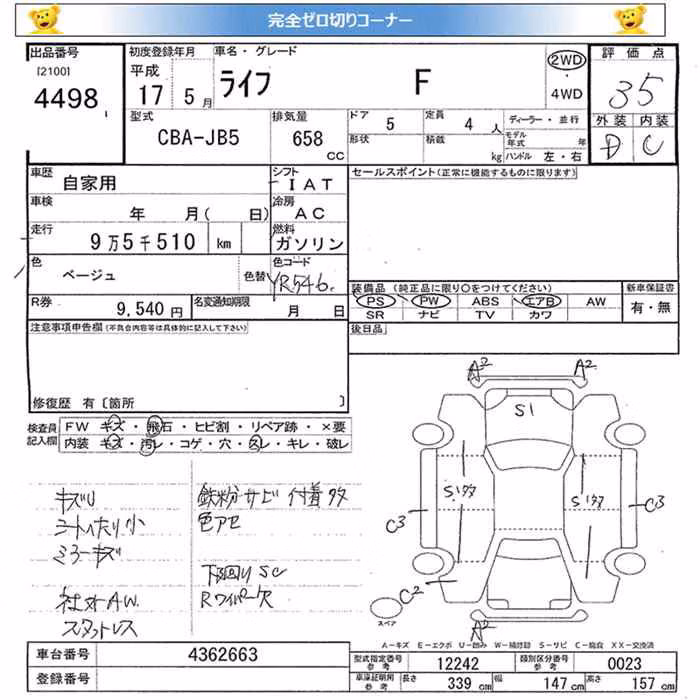 完全ゼロ切りコーナー
出品番号 初度登録年月 車名・グレード 評価点
[2100] 平成 ライフ F 2WD
4498 17 5月 ・ 4WD 35
型式 排気量 ドア 5 定員 4人 ディーラー・並行 外装 内装
CBA-JB5 658 CC 形状 積載 kg モデル年式 年 D C
ハンドル 左・右
車歴 自家用 シフト IAT セールスポイント(正常に機能するものに限ります)
車検 年 月( 日) 冷房 AC
走行 9万5千510 km 燃料 ガソリン
色 ベージュ 色替 色コード YR546
装備品 (純正品に限り○をつけてください) 新車保証書
PS PW ABS エアB AW 有・無
SR ナビ TV カワ
R券 9,540円 名変通知期限 月 日
後日品
注意事項申告欄(不具合内容等は具体的に記入して下さい)
修復歴 有〔箇所 〕
検査員記入欄 FW キズ・飛石・ヒビ割・リペア跡・×要
内装 キズ・汚レ・コゲ・穴・スレ・キレ・破レ
A2 A2
S1
S1タタ S1タタ
C3 C3
C2
A2
スペア
キズU 鉄粉サビ付着タタ
シートヘたり小 色アセ
ミラーキズ
下回りSC
社外AW Rワイパー欠
スタットレス
A-キズ E-エクボ U-凹み W-補修跡 S-サビ C-腐食 XX-交換済
車台番号 4362663 型式指定番号 参考 12242 類別区分番号 参考 0023
登録番号 車庫証明用 参考 長さ 339 cm 幅 147 cm 高さ 157 cm